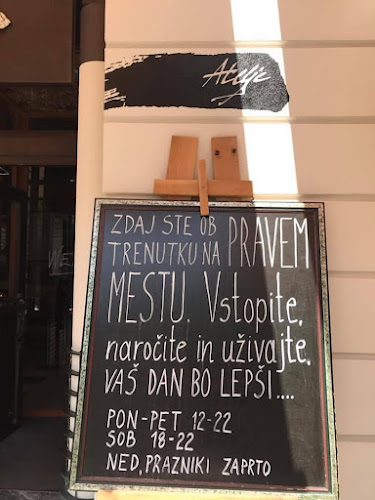 Atelje
ZDAJ STE OB
TRENUTKU NA PRAVEM
MESTU. Vstopite,
naročite in uživajte.
VAŠ DAN BO LEPŠI....
PON-PET 12-22
SOB 18-22
NED, PRAZNIKI ZAPRTO